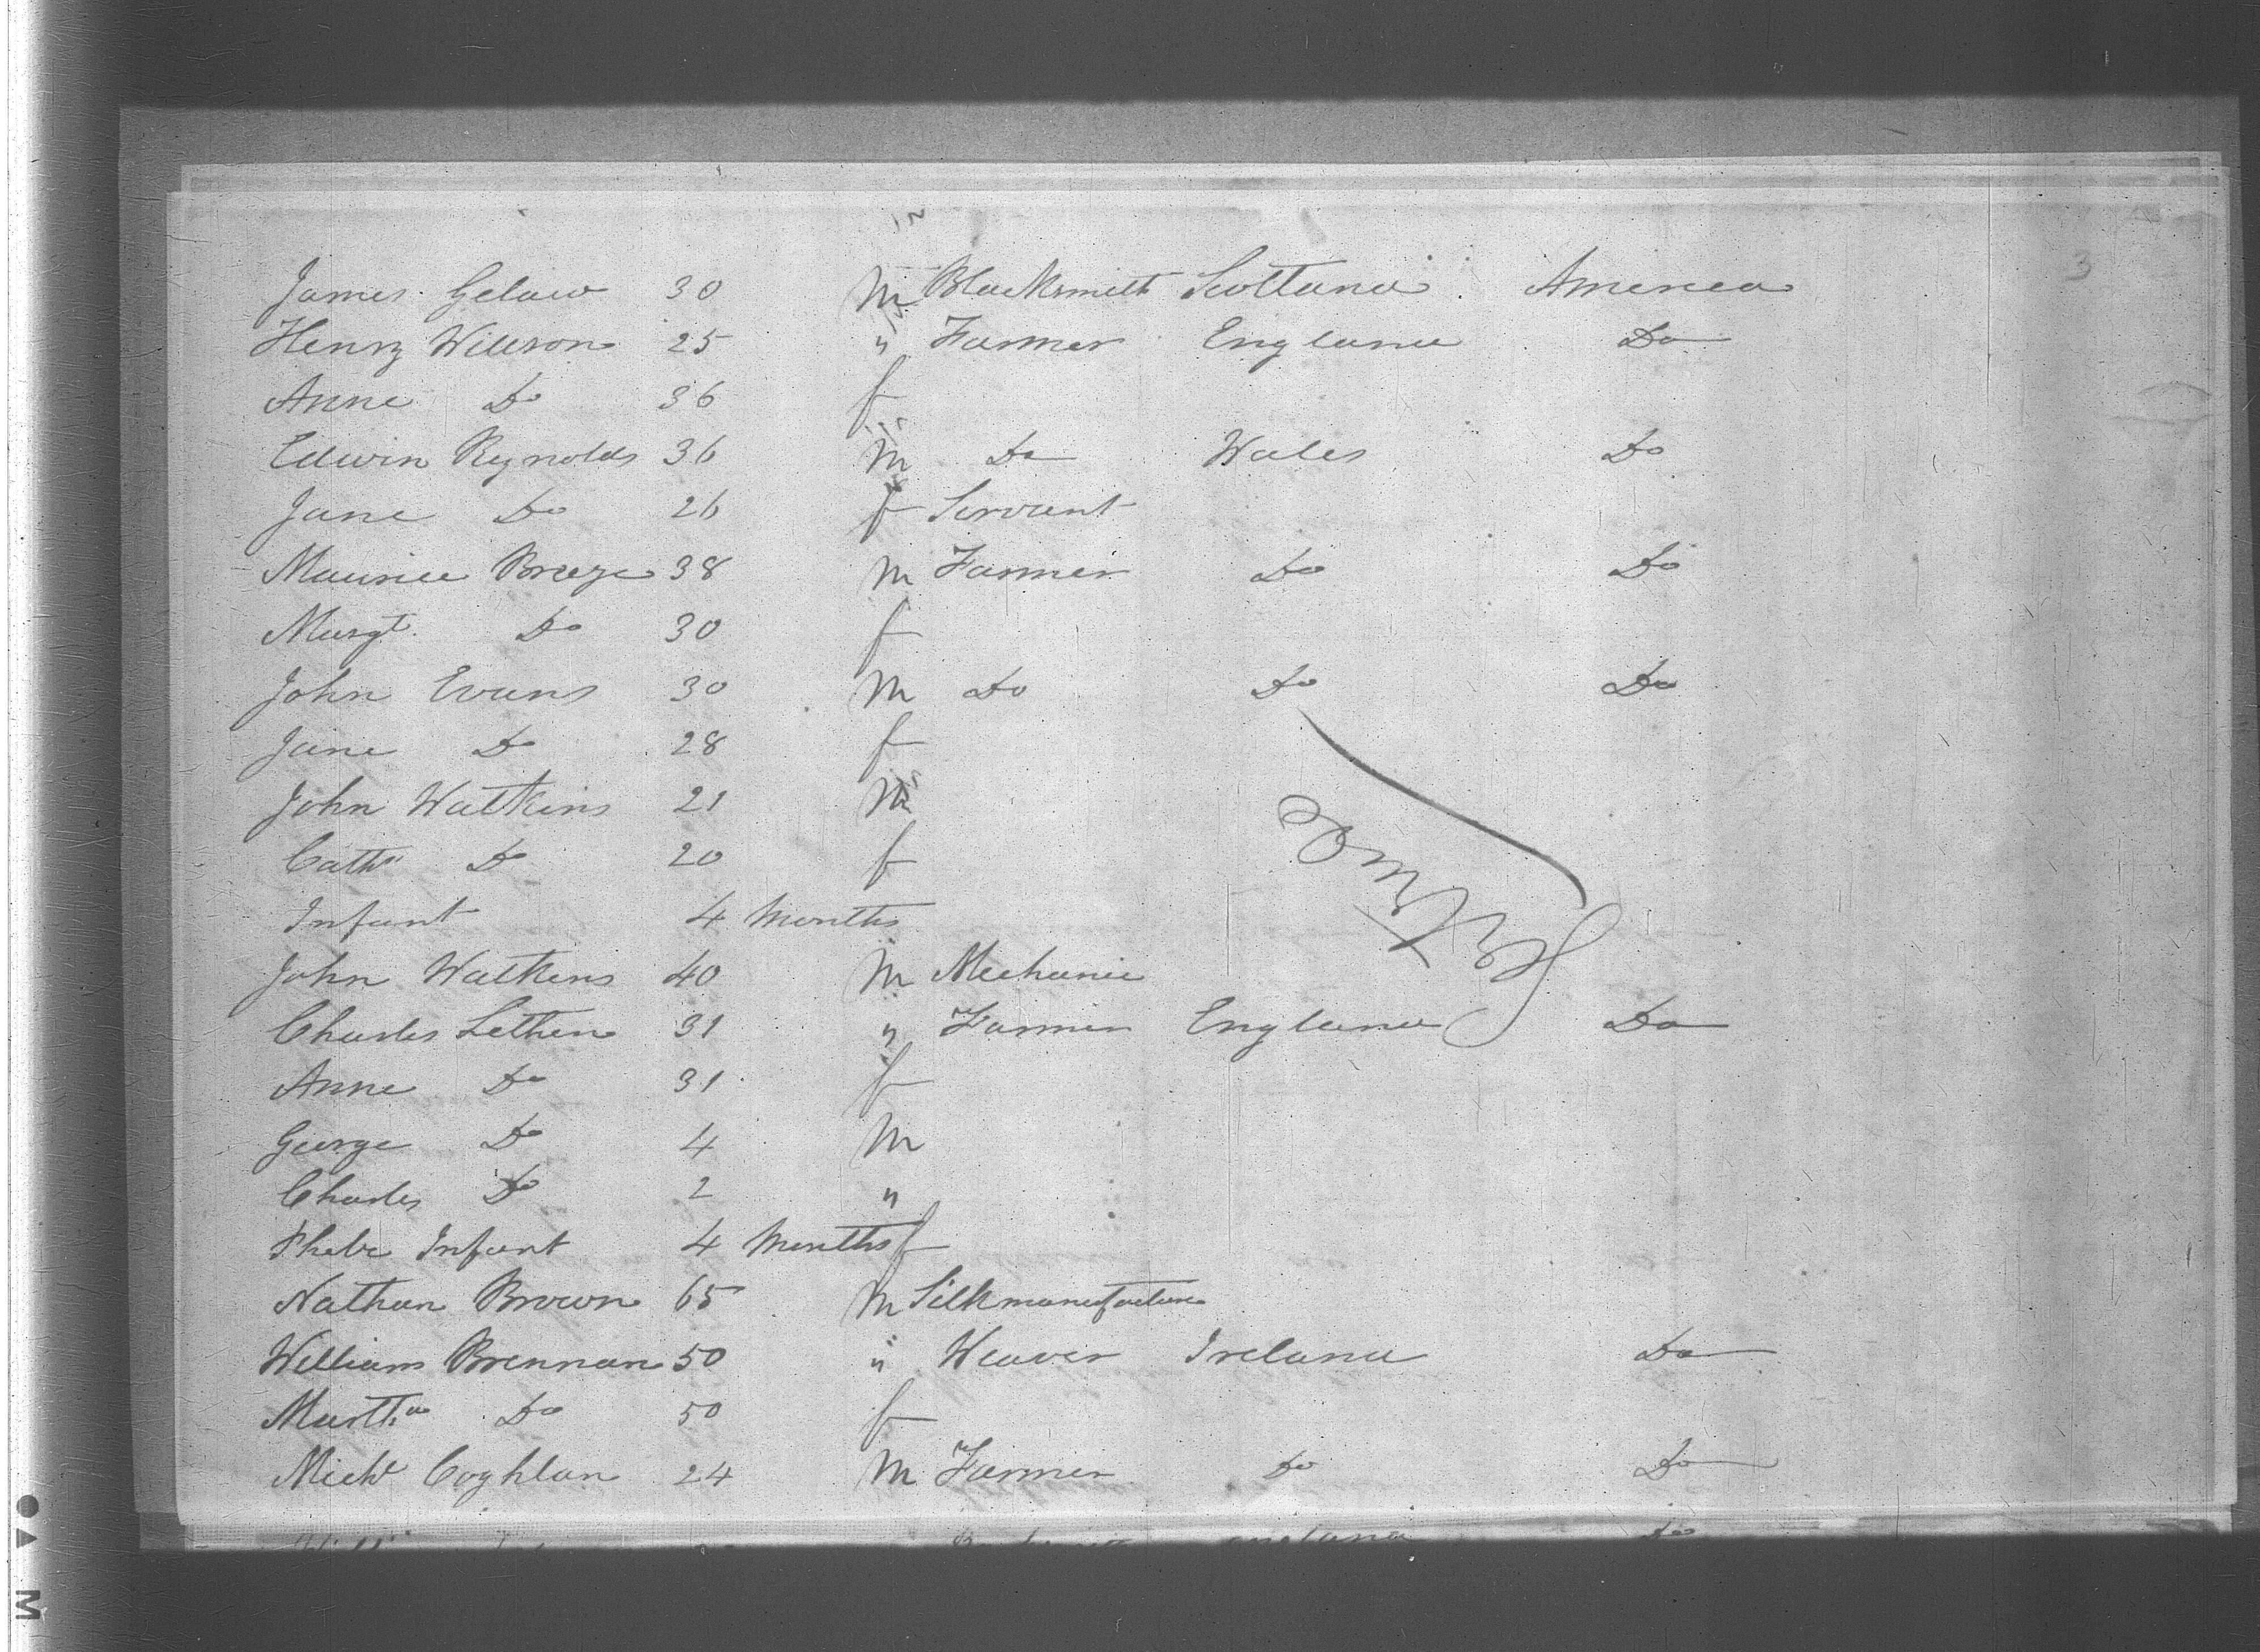 3
James Gelaw 30 M Blacksmith Scotland America
Henry Willson 25 " Farmer England Do
Anne Do 36 f
Edwin Reynolds 36 M Do Wales Do
Jane Do 26 f Servant
Maurice Breeze 38 M Farmer Do Do
Margt. Do 30 f
John Evans 30 M Do Do Do
Jane Do 28 f
John Watkins 21 M
Cath Do 20 f
Infant 4 Months
John Watkins 40 M Mechanic
Charles Lethen 31 " Farmer England Do
Anne Do 31 f
George Do 4 M
Charles Do 2 "
Phebe Infant 4 Months f
Nathan Brown 65 M Silkmanufacturer
William Brennan 50 " Weaver Ireland Do
Martha Do 50 f
Michl Coghlan 24 M Farmer Do Do